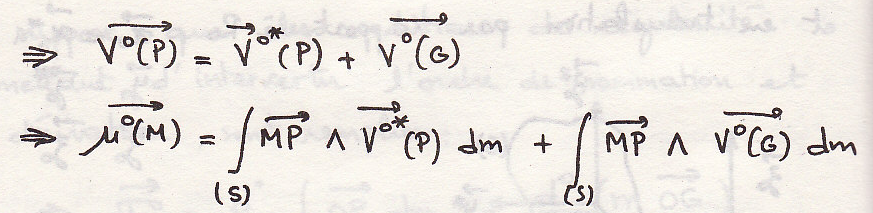 ⇒ V⃗°(P) = V⃗°*(P) + V⃗°(G)
⇒ μ⃗°(M) = ∫(S) MP⃗ ∧ V⃗°*(P) dm + ∫(S) MP⃗ ∧ V⃗°(G) dm